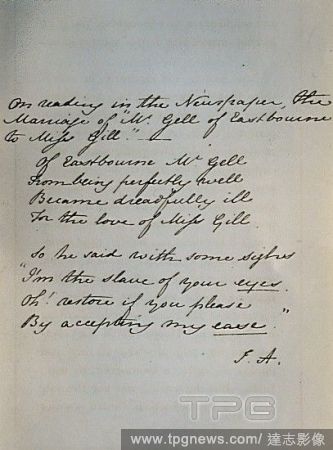 On reading in the Newspaper, the
Marriage of "Mr. Gell of Eastbourne
to Miss Gill." —
Of Eastbourne Mr Gell
From being perfectly well
Became dreadfully ill
For the love of Miss Gill
So he said with some sighs
"I'm the slave of your eyes
Oh! restore if you please
By accepting my ease."
J. A.
TPG
www.tpgnews.com/達志影像